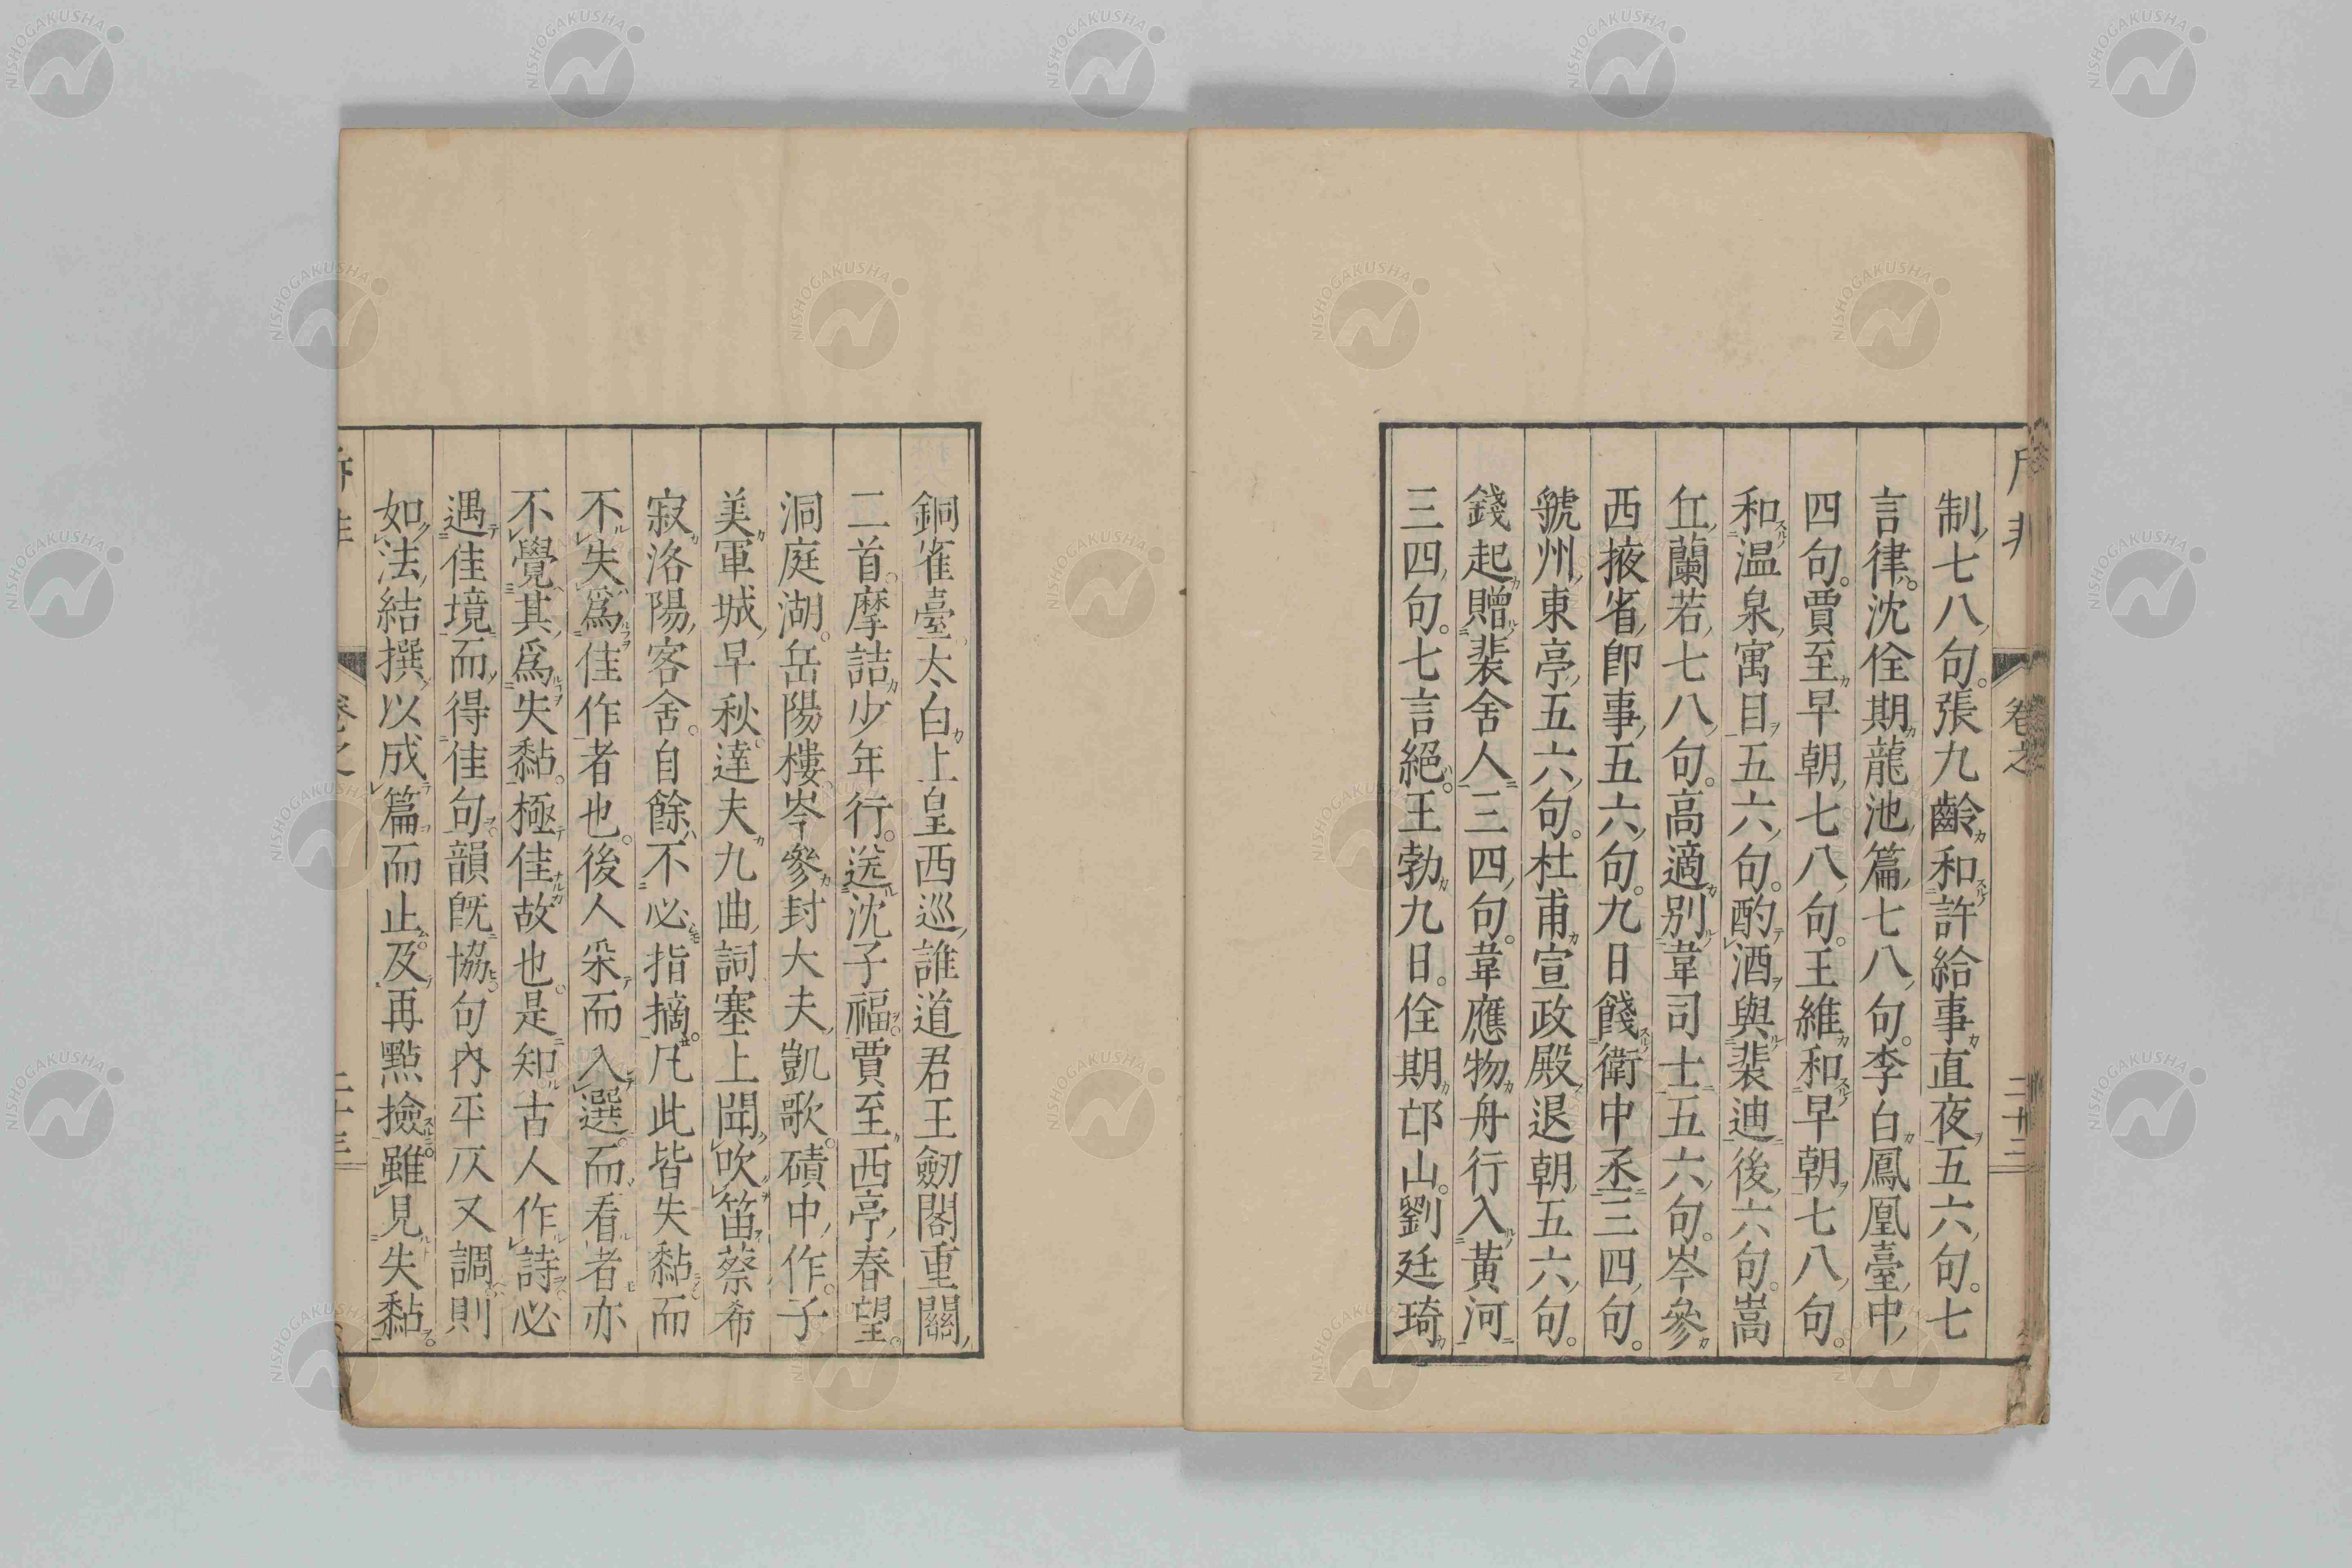 制七八句。張九齡和許給事直夜五六句。七
言律。沈佺期龍池篇七八句。李白鳳凰臺中
四句。賈至早朝七八句。王維和早朝七八句。
和温泉寓目五六句。酌酒與裴迪後六句。嵩
丘蘭若七八句。高適別韋司士五六句。岑參
西掖省即事五六句。九日餞衛中丞三四句。
虢州東亭五六句。杜甫宣政殿退朝五六句。
錢起贈裴舍人三四句。韋應物舟行入黃河
三四句。七言絕。王勃九日。佺期邙山。劉廷琦
銅雀臺太白上皇西巡誰道君王劒閣重關
二首。摩詰少年行。送沈子福。賈至西亭春望。
洞庭湖。岳陽樓。岑參封大夫凱歌。磧中作。子
美軍城早秋。達夫九曲詞塞上聞吹笛蔡希
寂洛陽客舍。自餘不必指摘。凡此皆失黏而
不失爲佳作者也。後人采而入選。而看者亦
不覺其爲失黏。極佳故也。是知古人作詩必
遇佳境而得佳句韻旣協句內平仄又調則
如法結撰以成篇而止。及再點撿雖見失黏。
卷之
二十三
NISHOGAKUSHA